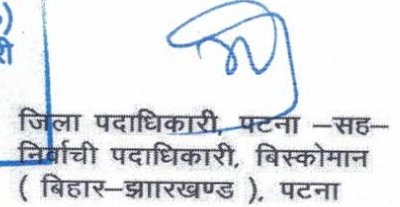 ०)
री
जिला पदाधिकारी, पटना –सह–
निर्वाची पदाधिकारी, बिस्कोमान
( बिहार–झाारखण्ड ), पटना